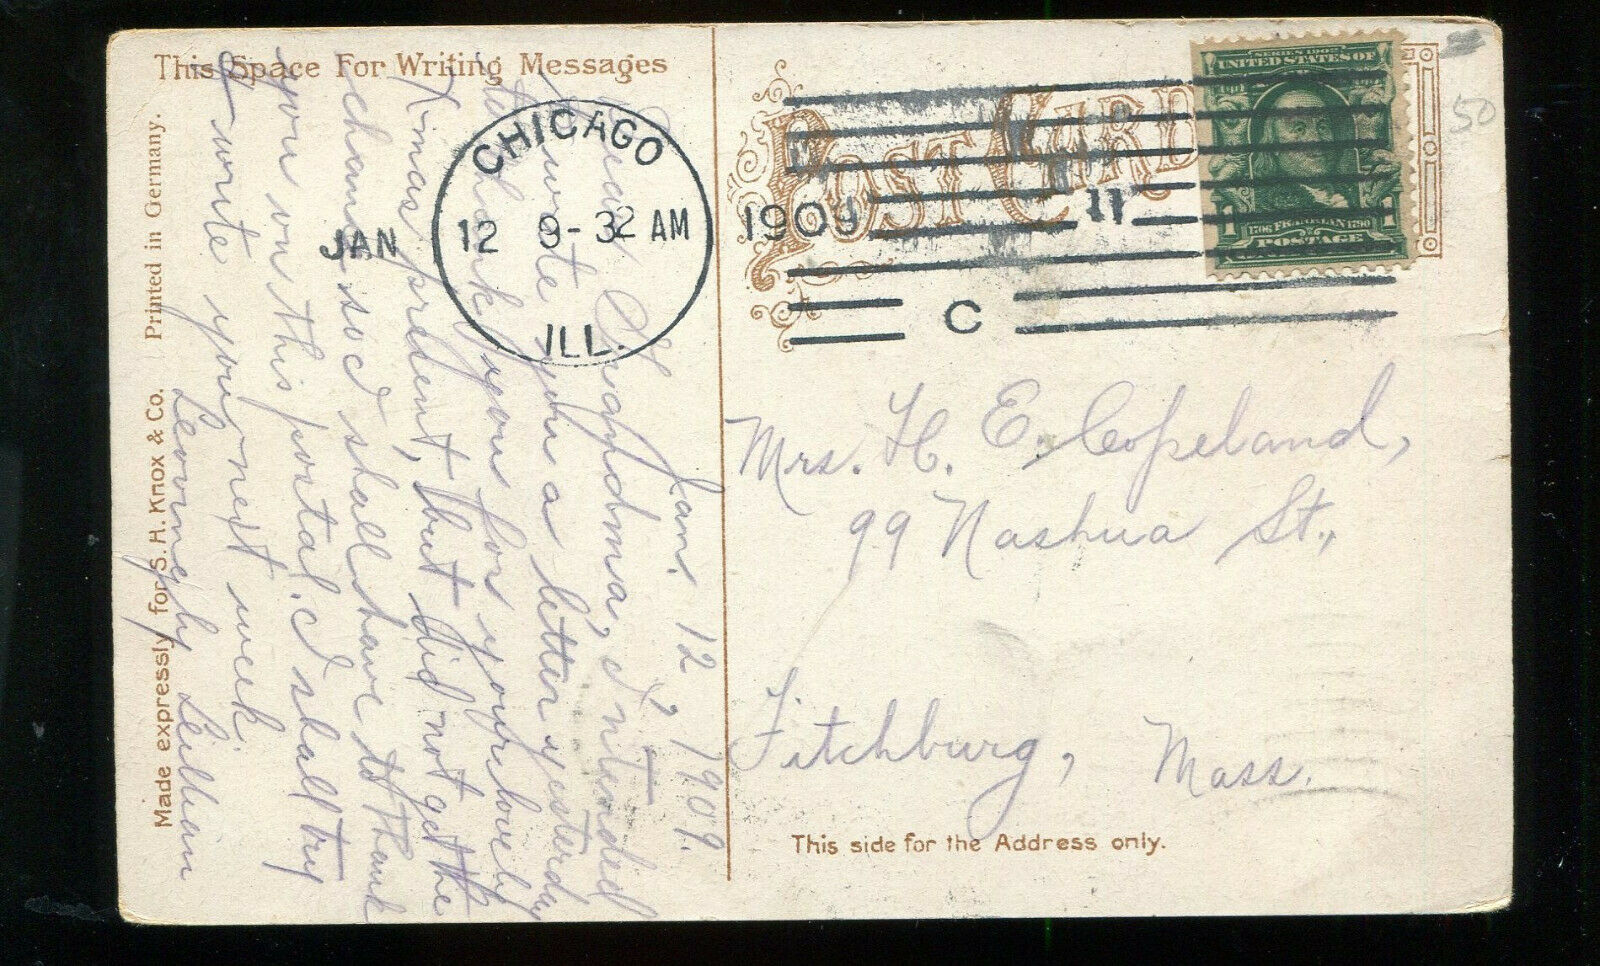 This Space For Writing Messages
Jan. 12, 1909.
Dear Grandma, I intended
to write you a letter yesterday
to thank you for your lovely
X-mas present, but did not get the
chance so I shall have to thank
you on this postal. I shall try
to write you next week.
Lovingly Lillian
Printed in Germany.
Made expressly for S. H. Knox & Co.
CHICAGO
JAN 12 9-32 AM
ILL.
1909
11
C
POST CARD
SERIES 1902
UNITED STATES OF
1706 FRANKLIN 1790
1 1
POSTAGE
50
Mrs. H. E. Copeland,
99 Nashua St.,
Fitchburg, Mass.
This side for the Address only.